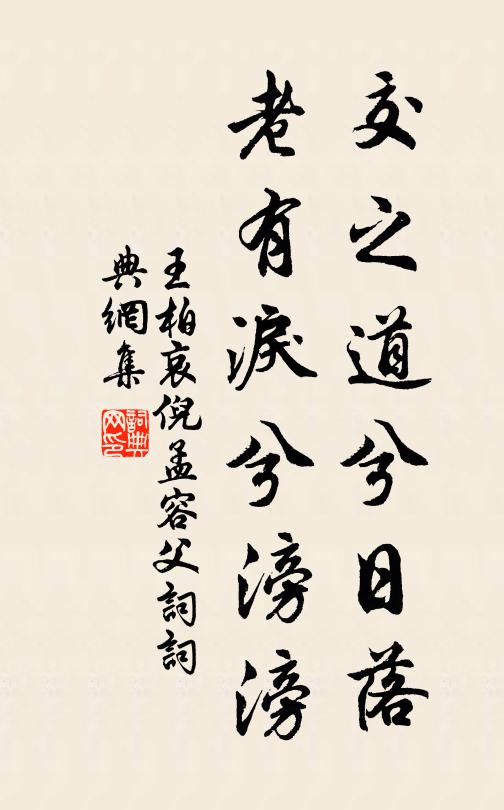 交之道兮日落
老有淚兮滂滂
王柏哀倪孟容父詞詞
典網集
詞典
网印